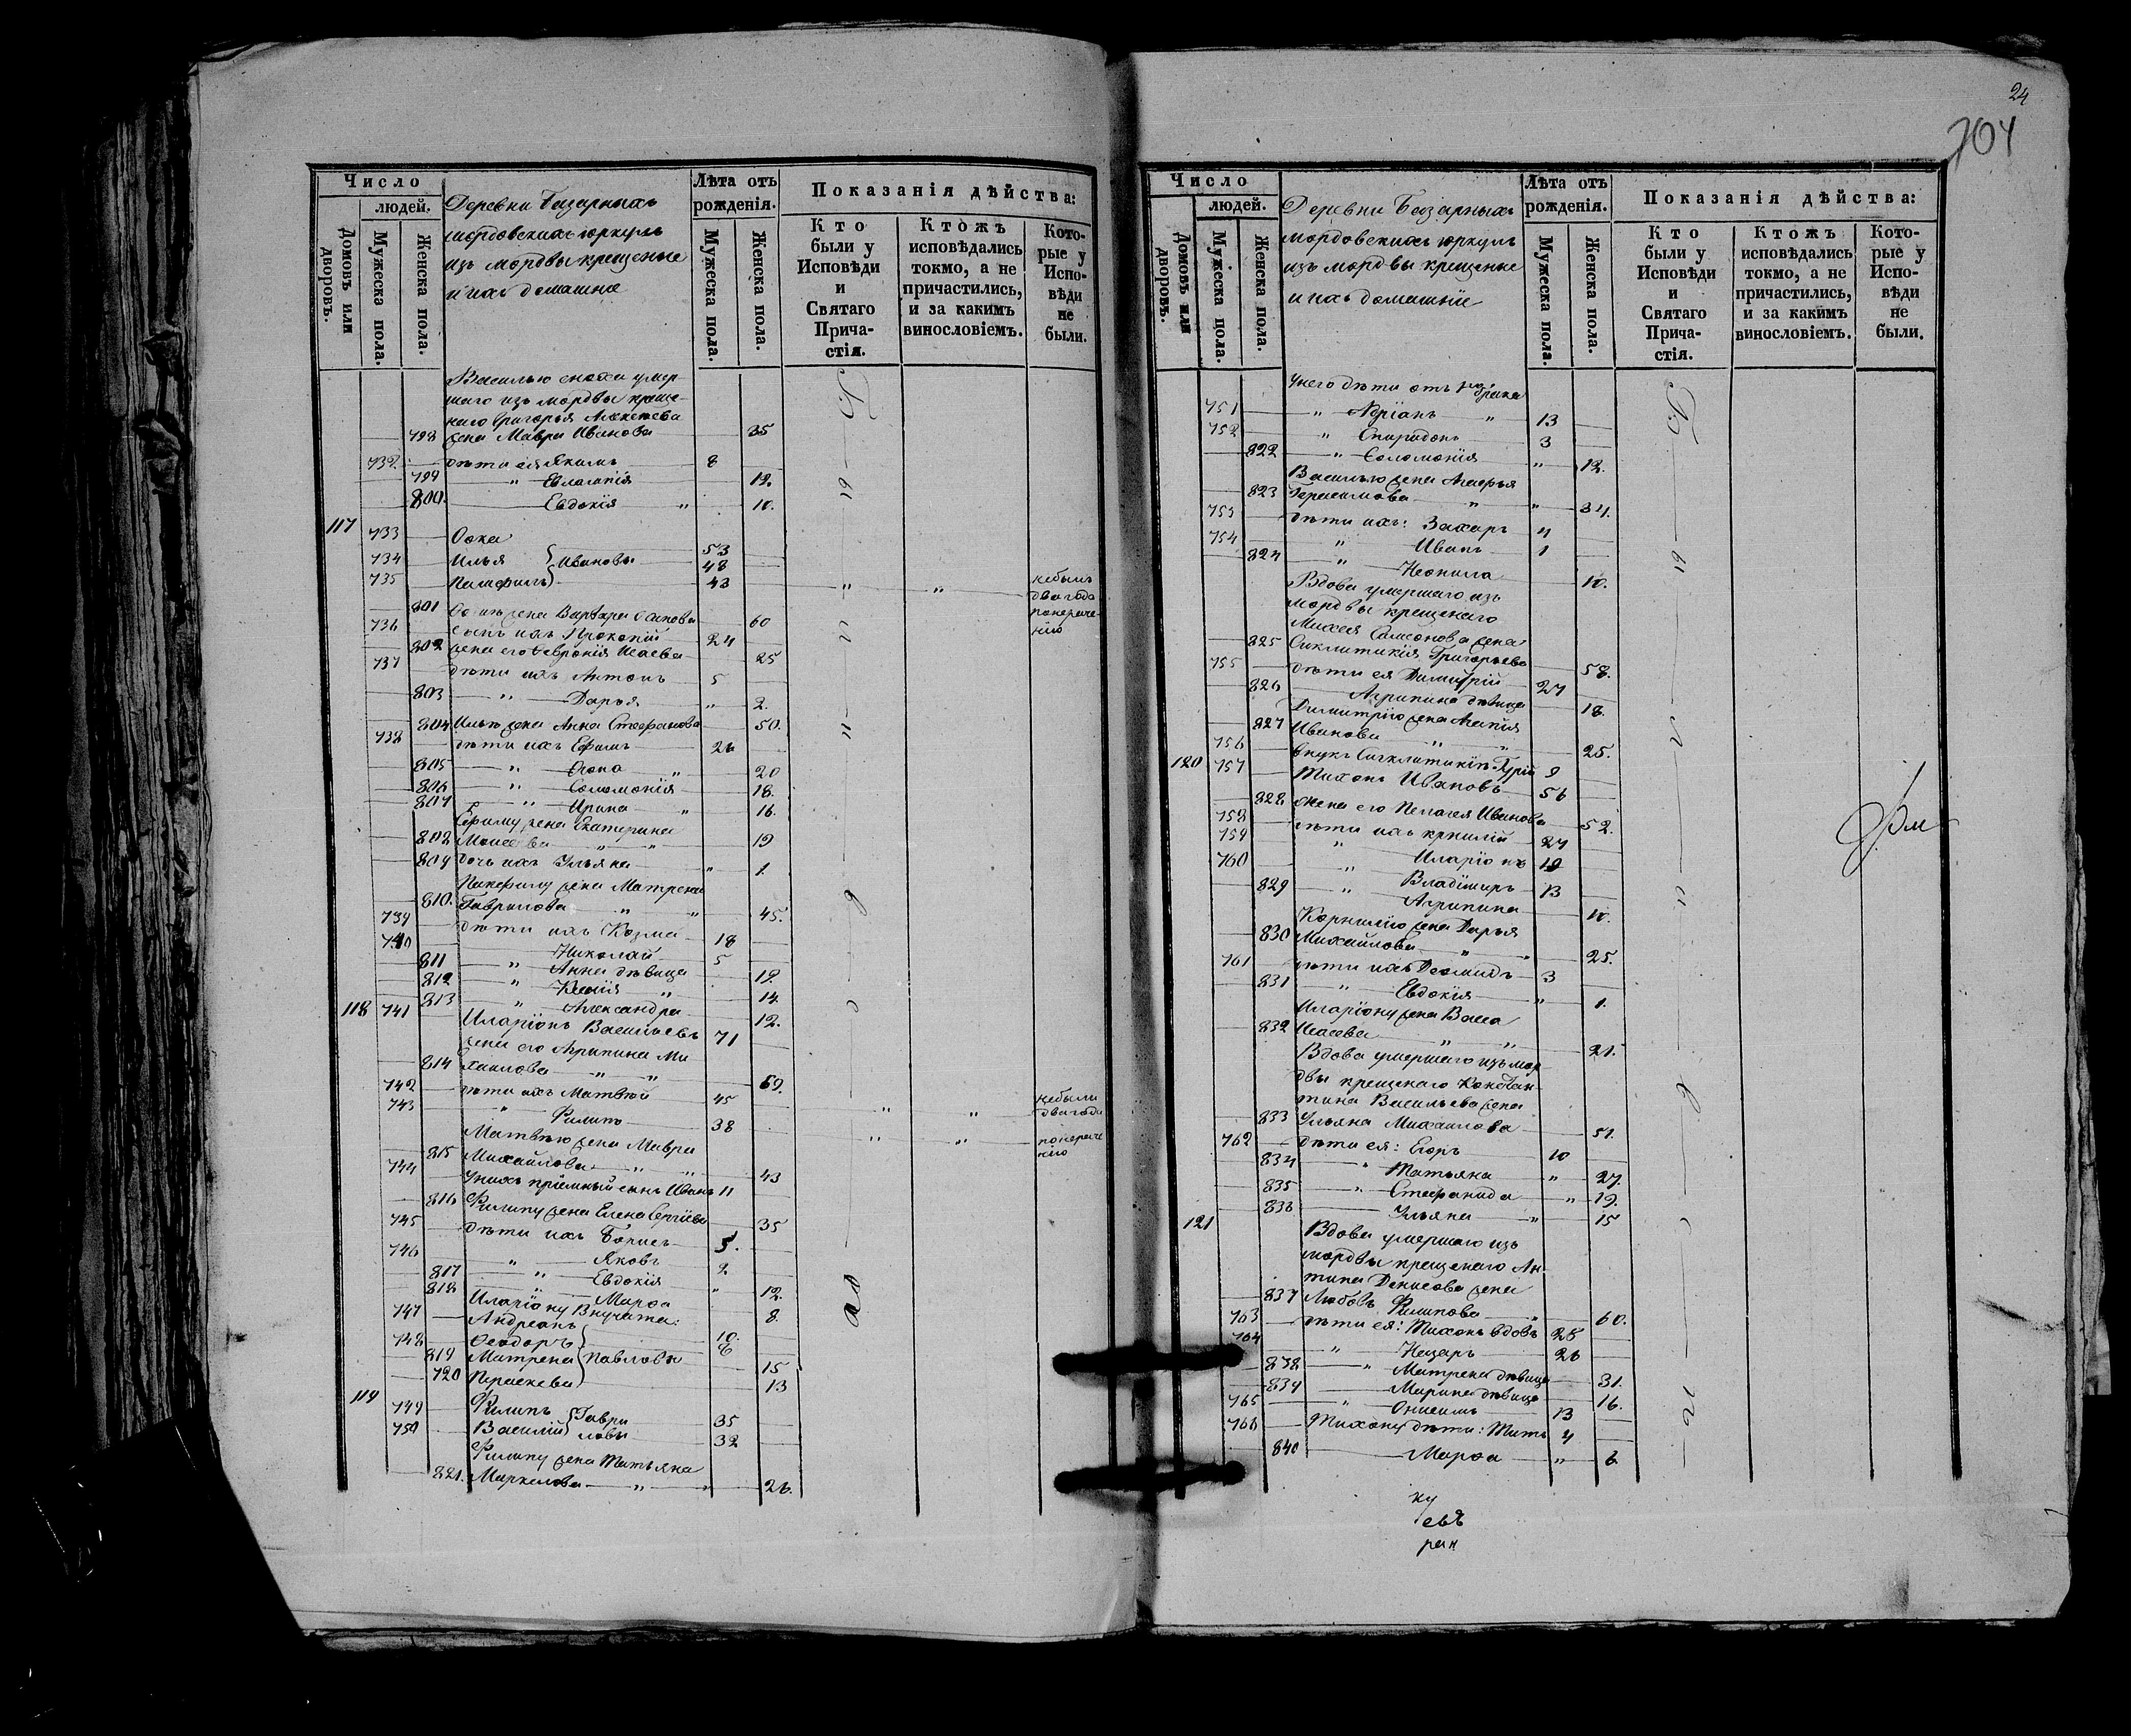 24
704
Число
людей.
Домовъ или дворовъ.
Мужеска пола.
Женска пола.
Деревни Базарныхъ
мордовскихъ юркуль
изъ мордвы крещеные
и ихъ домашніе
Лѣта отъ рожденія.
Мужеска пола.
Женска пола.
Показанія дѣйства:
Кто были у Исповѣди и Святаго Причастія.
Ктожъ исповѣдались токмо, а не причастились, и за какимъ винословіемъ.
Которые у Исповѣди не были.
Василью сноха умер-
шаго изъ мордвы креще-
наго Григорья
798 жена Мавра Иванова 35
732 дѣти ея Якимъ 8
799 " Евлампія 12.
800. Евдокія " 10.
117 733 Фока 53
734 Илья Ивановы 48
735 Памфилъ 43 " "
небылъ
два года
понераде-
нію
801 жена Варвара Осипова 60
736 сынъ ихъ Прокопій 24
802 жена его Февронія Исаева 25
737 дѣти ихъ Антонъ 5
803 " Дарья " 2.
804 Ильѣ жена Анна Стефанова 50.
738 дѣти ихъ Ефимъ 26
805 " " 20
806 " Соломонія 18.
807 " Ирина " 16.
Ефиму жена Екатерина
808 Моисеева " " 19
809 дочь ихъ Ульяна " 1.
Памфилу жена Матрена
810. Гаврилова " " 45.
739 дѣти ихъ Козма 18
740 Николай 5
811 " Анна дѣвица 19.
812 " Ксенія " 14.
813 " Александра 12.
118 741 Иларіонъ Васильевъ 71
жена его Агрипина Ми-
814 хаилова " " 69.
742 дѣти ихъ Матвѣй 45
743 " Филипъ 38
" " небыли
два года
" " понераде
нію
Матвѣю жена Мавра
815 Михайлова " " 43
744 Унихъ пріемный сынъ Иванъ 11
816 Филипу жена Елена Сергіева 35
745 дѣти ихъ Борисъ 5.
746 " Яковъ 2
817 " Евдокія " 12.
818 " Марфа 8.
Иларіону Внучата:
747 Андреянъ 10.
748 Феодоръ 8
819 Матрена Павловы 15
720 Параскева 13
119 749 Филипъ Гаври 35
750 Василій ловы 32
Филипу жена Татьяна
821. Маркелова " " 26.
Число
людей.
Домовъ или дворовъ.
Мужеска пола.
Женска пола.
Деревни Базарныхъ
мордовскихъ юркуль
изъ мордвы крещеные
и ихъ домашніе
Лѣта отъ рожденія.
Мужеска пола.
Женска пола.
Показанія дѣйства:
Кто были у Исповѣди и Святаго Причастія.
Ктожъ исповѣдались токмо, а не причастились, и за какимъ винословіемъ.
Которые у Исповѣди не были.
Унего дѣти отъ 1го брака
751 " Адріанъ " 13
752 " Спиридонъ 3
822 " Соломонія " 12.
Василью жена Агафья
823 Герасимова " " 34.
753 дѣти ихъ: Захаръ 4
754 " Иванъ 1
824 " Неонила 10.
Вдова умершаго изъ
мордвы крещенаго
Михея Самсонова жена
825 Сиклитикія Григорьева 58.
755 дѣти ея Димитрій 27
826 Агрипина дѣвица 18.
Димитрію жена Агапія
827 Иванова " " 25.
756 внукъ Сиклитикіи Гурій 9
120 757 Тихонъ Ивановъ 56
828 Жена его Пелагея Иванова 52.
758 дѣти ихъ 27
759 " Иларіонъ 19
760 " Владиміръ 13
829 " Агрипина 10.
Корнилію жена Дарья
830 Михайлова " " 25.
761 дѣти ихъ Деомидъ 3
831 " Евдокія " 1.
Иларіону жена Васса
832 Исаева " " 21.
Вдова умершаго изъ мор
двы крещенаго Констан-
тина Васильева жена
833 Ульяна Михаилова 51.
762 дѣти ея: Егоръ 10
834 " Татьяна " 27.
835 " Стефанида " 19.
836 Ульяна " 15
121 Вдова умершаго изъ
мордвы крещенаго Ан-
типа Денисова жена
837 Любовь Филипова " 60.
763 дѣти ея: Тихонъ вдовъ 28
764 " Назаръ 26
838 " Матрена дѣвица 31.
839 Марина дѣвица 16.
765 " Онисимъ 13
766 Тихону дѣти: Титъ 4
840 Марфа " 6